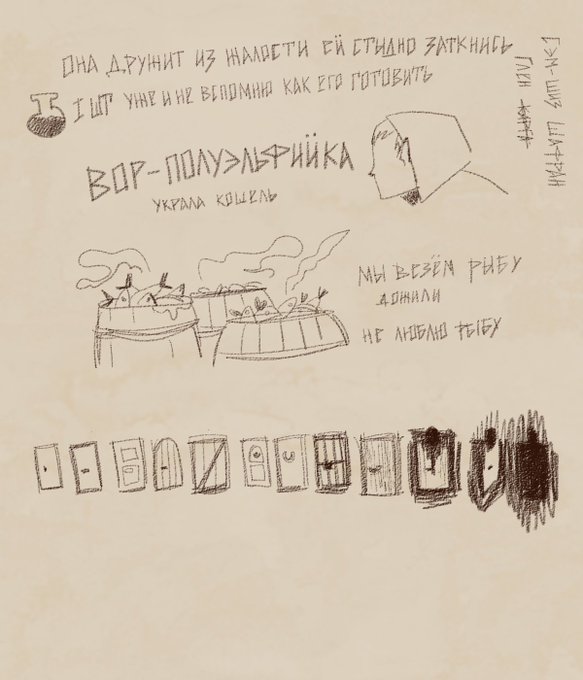 ОНА ДРУЖИТ ИЗ ЖАЛОСТИ ЕЙ СТЫДНО ЗАТКНИСЬ
1 ШТ УЖЕ И НЕ ВСПОМНЮ КАК ЕГО ГОТОВИТЬ
ГЛЕН
СЭМ-ШИЗ ШАФРАН
ВОР-ПОЛУЭЛЬФИЙКА
УКРАЛА КОШЕЛЬ
МЫ ВЕЗЁМ РЫБУ
ДОЖИЛИ
НЕ ЛЮБЛЮ РЫБУ